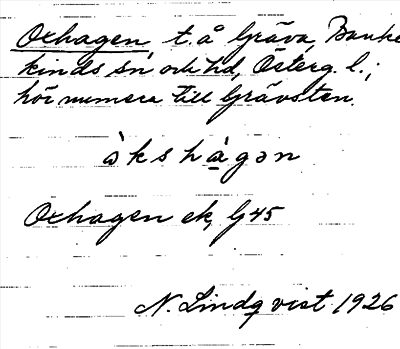 Oxhagen, t. å Gräva, Banke
kinds sn och hd, Österg. l.;
hör numera till Grävsten.
òkshàgən
Oxhagen ek, G 45
N. Lindqvist 1926